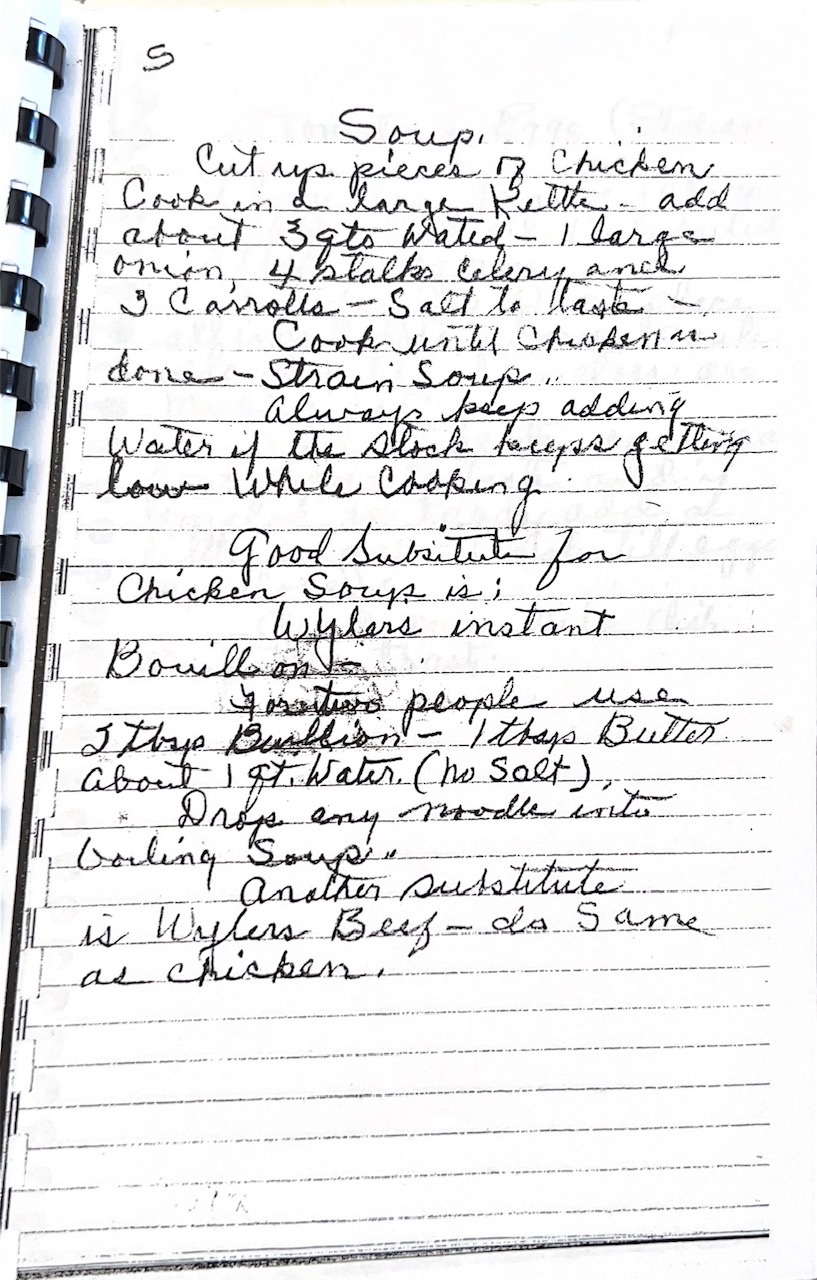 5
Soup.
Cut up pieces of Chicken
Cook in a large Kettle - add
about 3 qts Water - 1 large
onion, 4 stalks Celery and
3 Carrotts - Salt to taste -
Cook until Chicken is
done - Strain Soup..
Always keep adding
Water if the stock keeps getting
low While Cooking.
Good Subsitute for
Chicken Soup is;
Wylers instant
Bouillon -
For two people use
Tbsp Buillion - 1 tbsp Butter
About 1 qt. Water. (No Salt),
Drop any noodle into
boiling Soup"
Another substitute
is Wylers Beef - do Same
as chicken.